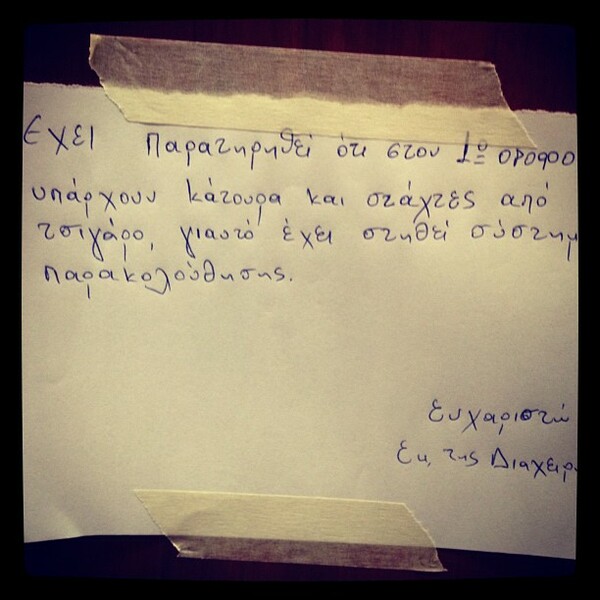 Έχει παρατηρηθεί ότι στον 1º οροφο
υπάρχουν κάτουρα και στάχτες από
τσιγάρο, γιαυτό έχει στηθεί σύστημ
παρακολούθησης.
Ευχαριστώ
Εκ, της Διαχειρ